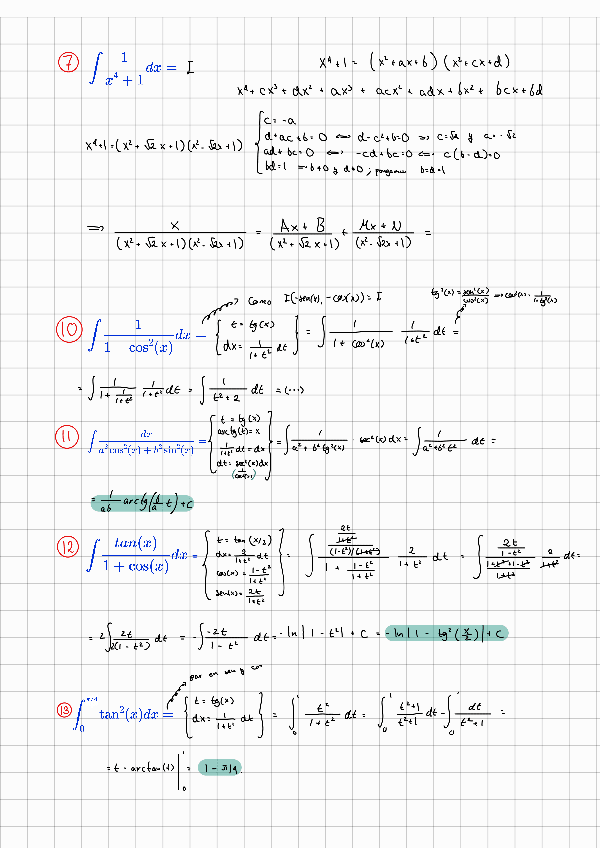 ⑦ ∫ 1/(x⁴+1) dx = I    x⁴+1 = (x²+ax+b)(x²+cx+d)
x⁴+cx³+dx²+ax³+acx²+adx+bx²+bcx+bd
x⁴+1=(x²+√2x+1)(x²-√2x+1) { c=-a
d+ac+b=0 ⟺ d-c²+b=0 ⟹ c=√2 y a=-√2
ad+bc=0 ⟺ -cd+bc=0 ⟺ c(b-d)=0
bd=1 ⟹ b≠0 y d≠0; b=d=1
⟹ x/((x²+√2x+1)(x²-√2x+1)) = (Ax+B)/(x²+√2x+1) + (Mx+N)/(x²-√2x+1) =
Como I(-sen(x),-cos(x))=I    tg²(x)=sen²(x)/cos²(x) ⟹ cos²(x)=1/(1+tg²(x))
⑩ ∫ 1/(1 cos²(x)) dx = { t=tg(x) dx=1/(1+t²) dt } = ∫ 1/(1+cos²(x)) 1/(1+t²) dt =
= ∫ 1/(1+1/(1+t²)) 1/(1+t²) dt = ∫ 1/(t²+2) dt = (...)
⑪ ∫ dx/(a²cos²(x)+b²sin²(x)) = { t=tg(x) arctg(t)=x 1/(1+t²) dt=dx dt=sec²(x)dx (1/cos²(x)) } = ∫ 1/(a²+b²tg²(x)) · sec²(x)dx = ∫ 1/(a²+b²t²) dt =
= 1/(ab) arctg(b/a t)+C
⑫ ∫ tan(x)/(1+cos(x)) dx = { t=tan(x/2) dx=2/(1+t²) dt cos(x)=(1-t²)/(1+t²) sen(x)=2t/(1+t²) } = ∫ ((2t/(1+t²))/((1-t²)/(1+t²)))/(1+(1-t²)/(1+t²)) 2/(1+t²) dt = ∫ (2t/(1-t²))/((1+t²+1-t²)/(1+t²)) 2/(1+t²) dt =
= 2∫ 2t/(2(1-t²)) dt = -∫ -2t/(1-t²) dt = -ln|1-t²|+C = -ln|1-tg²(x/2)|+C
par en sen y cos
⑬ ∫₀^(π/4) tan²(x)dx = { t=tg(x) dx=1/(1+t²) dt } = ∫₀¹ t²/(1+t²) dt = ∫₀¹ (t²+1)/(t²+1) dt - ∫₀¹ dt/(t²+1) =
= t-arctan(t)|₀¹ = 1-π/4